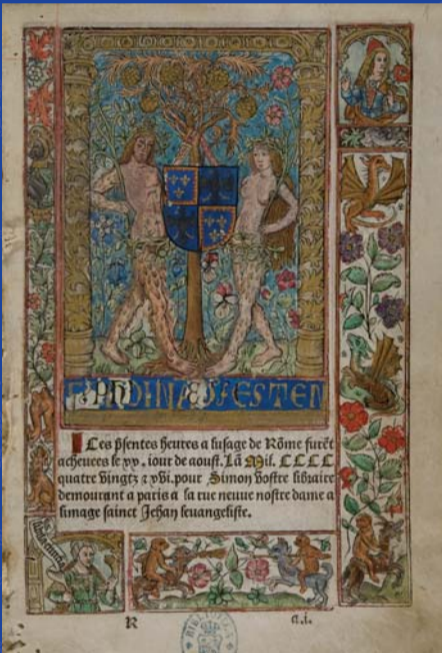 Ces pſentes heures a luſage de Rõme furẽt
acheuees le xx. iour de aouſt. Lã Mil. CCCC
quatre vingtz ⁊ xvi. pour Simon voſtre libraire
demourant a paris a la rue neuue noſtre dame a
lymage ſainct Jehan leuangeliſte.
R
a.i.